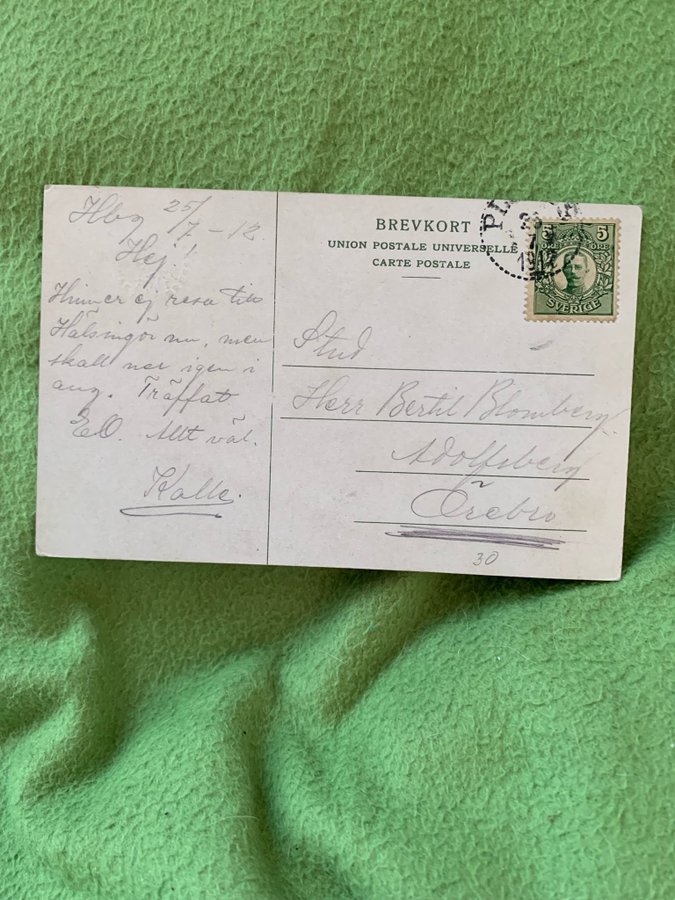 Hbg 25/7-12
Hej!
Hinner ej resa till
Hälsingör nu, men
skall ner igen i
aug. Träffat
EO. Allt väl.
Kalle.
BREVKORT
UNION POSTALE UNIVERSELLE
CARTE POSTALE
1912
5 5
ÖRE ÖRE
SVERIGE
Stud
Herr Bertil Blomberg
Adolfsberg
Örebro
30